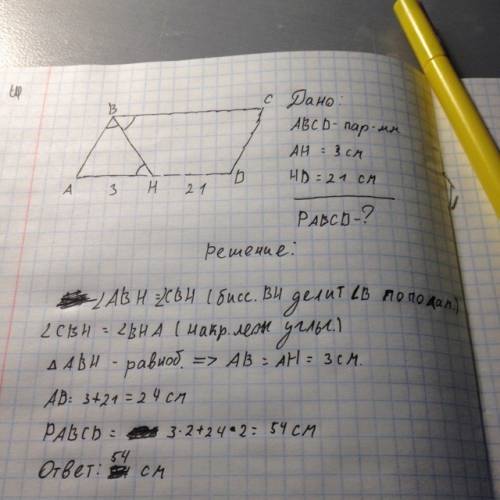 B
C
A
3
H
21
D
Дано:
ABCD - пар-мм
AH = 3 см
HD = 21 см
PABCD - ?
решение:
∠ABH = ∠CBH (бисс. BH делит ∠B пополам.)
∠CBH = ∠BHA (накр. леж углы.)
△ ABH - равноб. => AB = AH = 3 см.
AD = 3+21 = 24 см
PABCD = 3·2+24·2 = 54 см
Ответ: 54 см